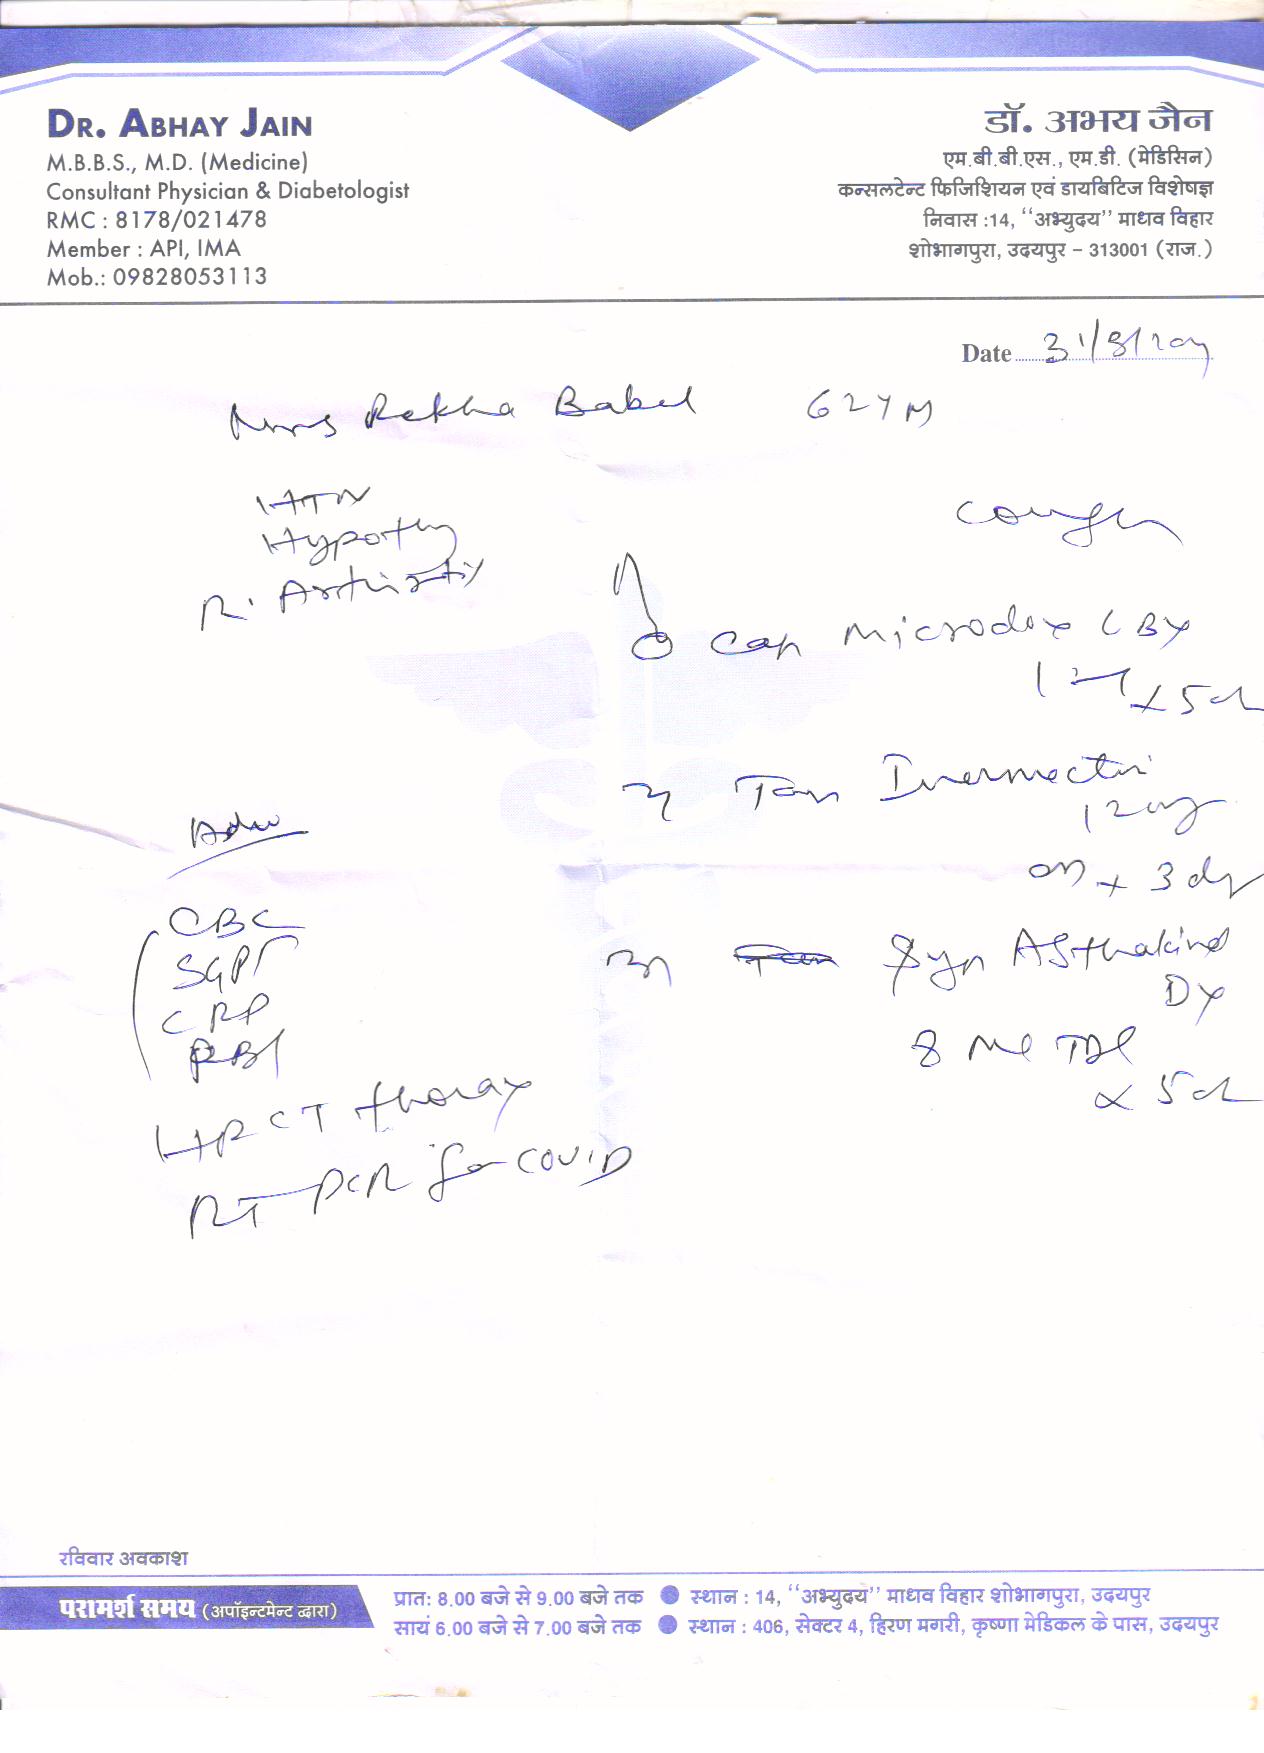 DR. ABHAY JAIN
M.B.B.S., M.D. (Medicine)
Consultant Physician & Diabetologist
RMC : 8178/021478
Member : API, IMA
Mob.: 09828053113
डॉ. अभय जैन
एम.बी.बी.एस., एम.डी. (मेडिसिन)
कन्सलटेन्ट फिजिशियन एवं डायबिटिज विशेषज्ञ
निवास :14, ‘‘अभ्युदय’’ माधव विहार
शोभागपुरा, उदयपुर – 313001 (राज.)
Date
Mrs Rekha Babel 62 Y
HTN
Hypothy
R. Arthritis
Cough
Cap Microdox LBX
x 5d
Tab Ivermectin
12 mg
OD x 3 dy
Syp Asthakind
DX
8 ml TDS
x 5d
Adv
CBC
SGPT
CRP
RBS
HRCT thorax
RT-PCR for COVID
रविवार अवकाश
परामर्श समय (अपॉइन्टमेन्ट द्वारा)
प्रात: 8.00 बजे से 9.00 बजे तक ● स्थान : 14, ‘‘अभ्युदय’’ माधव विहार शोभागपुरा, उदयपुर
सायं 6.00 बजे से 7.00 बजे तक ● स्थान : 406, सेक्टर 4, हिरण मगरी, कृष्णा मेडिकल के पास, उदयपुर